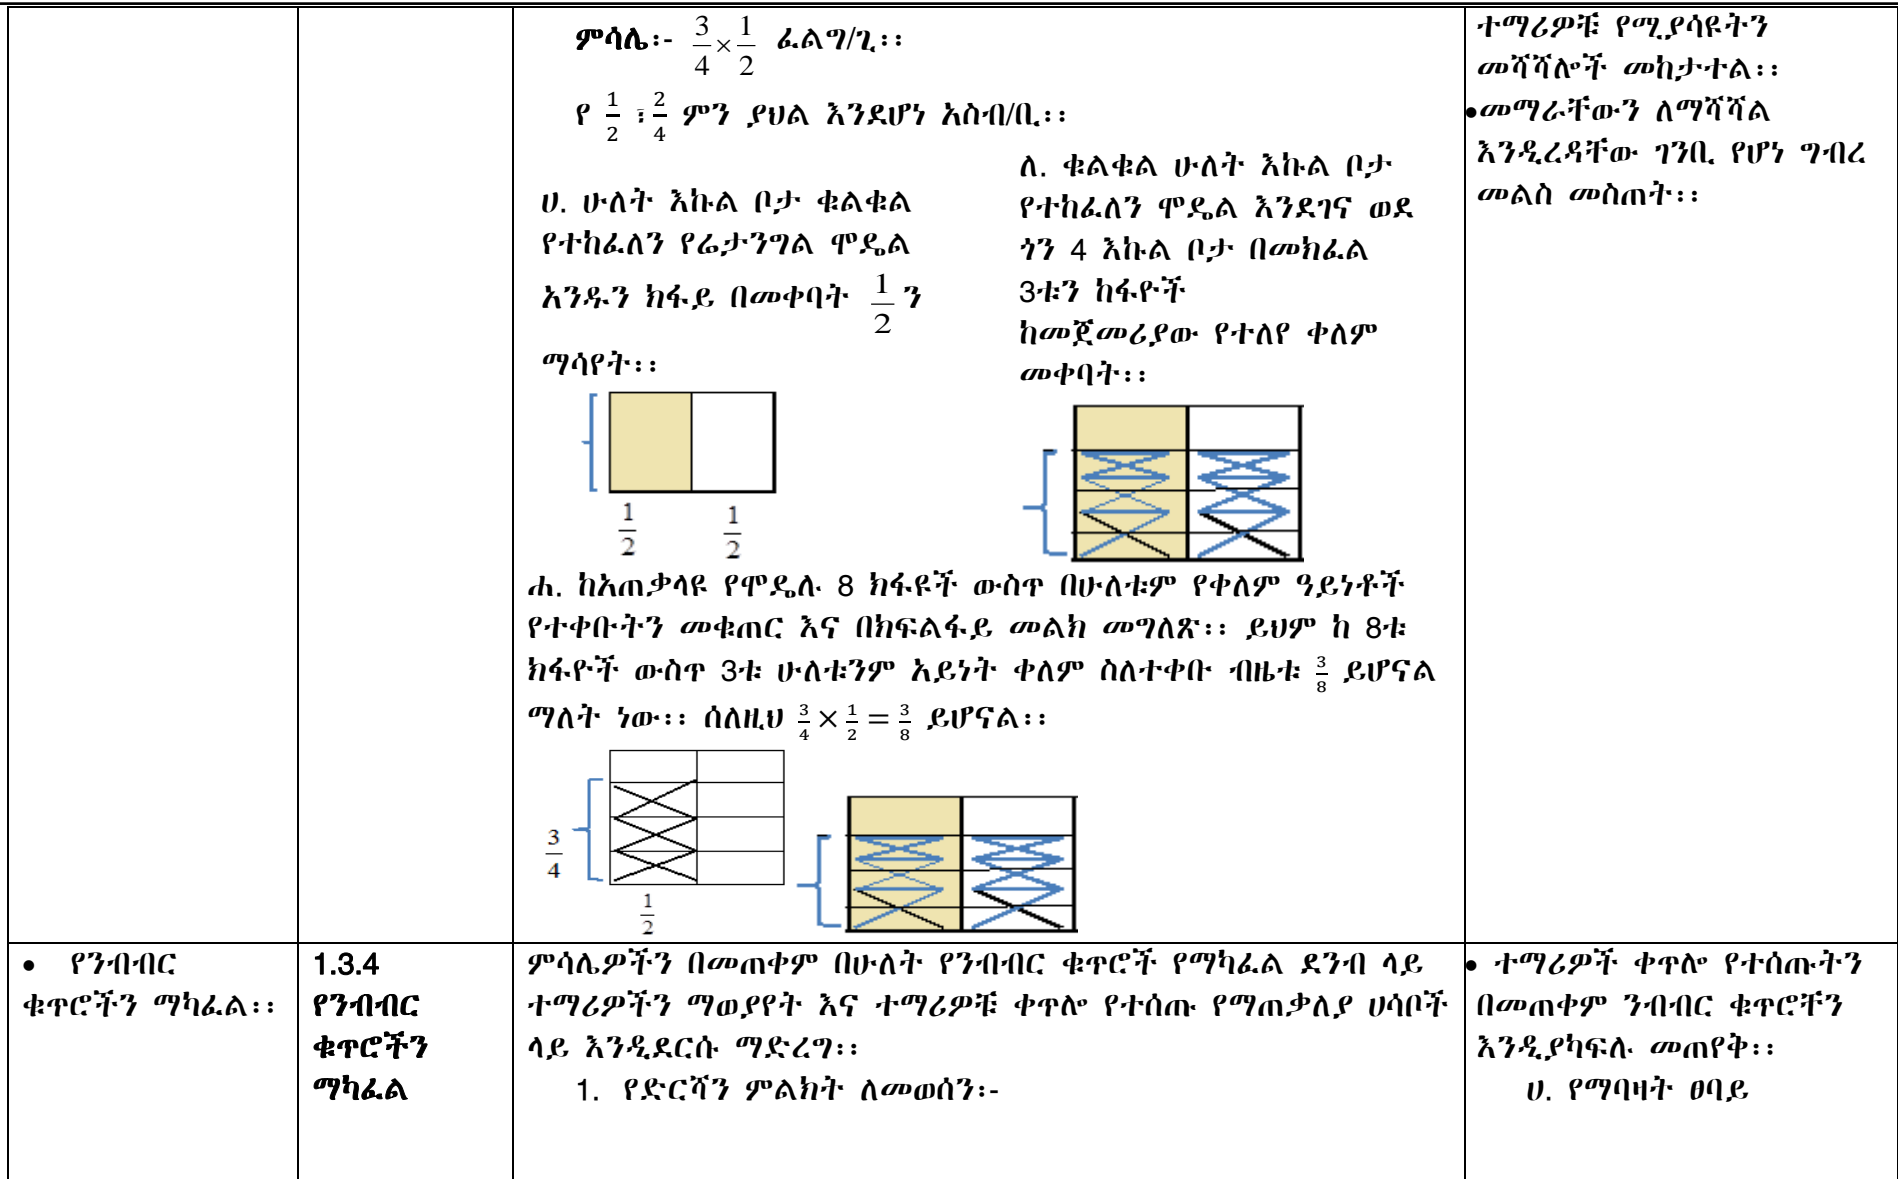 ምሳሌ፡- 3/4 × 1/2 ፈልግ/ጊ፡፡
የ 1/2 ፣ 2/4 ምን ያህል እንደሆነ አስብ/ቢ፡፡
ሀ. ሁለት እኩል ቦታ ቁልቁል
የተከፈለን የሬታንግል ሞዴል
አንዱን ክፋይ በመቀባት 1/2 ን
ማሳየት፡፡
1/2 1/2
ለ. ቁልቁል ሁለት እኩል ቦታ
የተከፈለን ሞዴል እንደገና ወደ
ጎን 4 እኩል ቦታ በመክፈል
3ቱን ከፋዮች
ከመጀመሪያው የተለየ ቀለም
መቀባት፡፡
ሐ. ከአጠቃላዩ የሞዴሉ 8 ክፋዩች ውስጥ በሁለቱም የቀለም ዓይነቶች
የተቀቡትን መቁጠር እና በክፍልፋይ መልክ መግለጽ፡፡ ይህም ከ 8ቱ
ክፋዮች ውስጥ 3ቱ ሁለቱንም አይነት ቀለም ስለተቀቡ ብዜቱ 3/8 ይሆናል
ማለት ነው፡፡ ሰለዚህ 3/4 × 1/2 = 3/8 ይሆናል፡፡
3/4
1/2
ተማሪዎቹ የሚያሳዩትን
መሻሻሎች መከታተል፡፡
•መማራቸውን ለማሻሻል
እንዲረዳቸው ገንቢ የሆነ ግብረ
መልስ መስጠት፡፡
• የንብብር
ቁጥሮችን ማካፈል፡፡
1.3.4
የንብብር
ቁጥሮችን
ማካፈል
ምሳሌዎችን በመጠቀም በሁለት የንብብር ቁጥሮች የማካፈል ደንብ ላይ
ተማሪዎችን ማወያየት እና ተማሪዎቹ ቀጥሎ የተሰጡ የማጠቃለያ ሀሳቦች
ላይ እንዲደርሱ ማድረግ፡፡
1. የድርሻን ምልክት ለመወሰን፡-
• ተማሪዎች ቀጥሎ የተሰጡትን
በመጠቀም ንብብር ቁጥሮቸን
እንዲያካፍሉ መጠየቅ፡፡
ሀ. የማባዛት ፀባይ